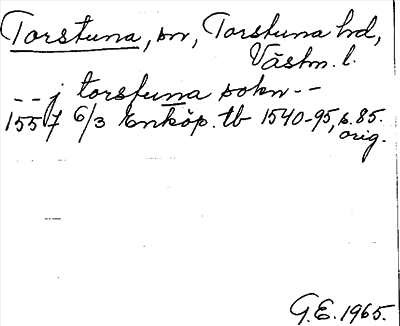 Torstuna, sn, Torstuna hd,
Västm. l.
-- j torstuna sokn --
1557 6/3 Enköp. tb 1540-95, s. 85.
orig.
G.E. 1965.